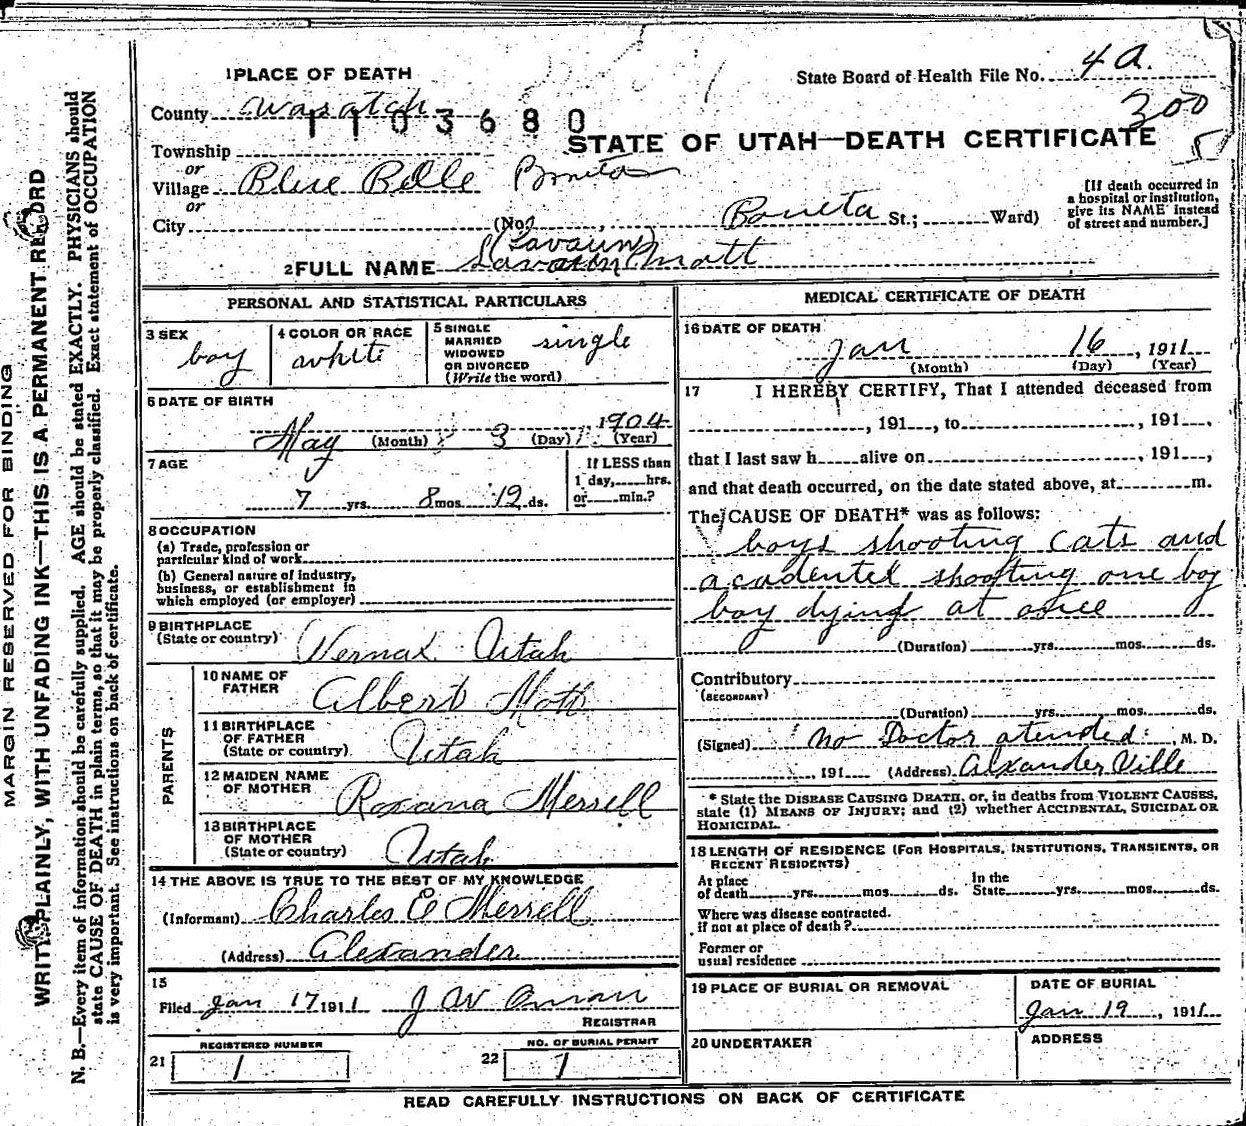 1 PLACE OF DEATH
State Board of Health File No. 4 a.
County Wasatch
300
1103680
STATE OF UTAH—DEATH CERTIFICATE
5
Township
or
Village Blue Belle
or
City (No. , Boneta St.; Ward)
[If death occurred in a hospital or institution, give its NAME instead of street and number.]
(Lavaun)
2 FULL NAME Mott
PERSONAL AND STATISTICAL PARTICULARS
3 SEX
boy
4 COLOR OR RACE
white
5 SINGLE MARRIED WIDOWED OR DIVORCED (Write the word)
single
6 DATE OF BIRTH
May (Month) 3 (Day) , 1904 (Year)
7 AGE
7 yrs. 8 mos. 12 ds.
If LESS than 1 day, hrs. or min.?
8 OCCUPATION
(a) Trade, profession or particular kind of work
(b) General nature of industry, business, or establishment in which employed (or employer)
9 BIRTHPLACE (State or country) Vernal Utah
PARENTS
10 NAME OF FATHER Albert Mott
11 BIRTHPLACE OF FATHER (State or country) Utah
12 MAIDEN NAME OF MOTHER Roxana Merrell
13 BIRTHPLACE OF MOTHER (State or country) Utah
14 THE ABOVE IS TRUE TO THE BEST OF MY KNOWLEDGE
(Informant) Charles E Merrell
(Address) Alexander
15
Filed Jan 17 1911 J W
REGISTRAR
21 REGISTERED NUMBER 1
22 NO. OF BURIAL PERMIT 1
MEDICAL CERTIFICATE OF DEATH
16 DATE OF DEATH
Jan (Month) 16 (Day) , 1911 (Year)
17 I HEREBY CERTIFY, That I attended deceased from
, 191 , to , 191 ,
that I last saw h alive on , 191 ,
and that death occurred, on the date stated above, at m.
The CAUSE OF DEATH* was as follows:
boys shooting cats and
acadentel shooting one boy
boy dying at once
(Duration) yrs. mos. ds.
Contributory
(SECONDARY)
(Duration) yrs. mos. ds.
(Signed) no Doctor atended , M. D.
, 191 (Address) Alxander Ville
* State the DISEASE CAUSING DEATH, or, in deaths from VIOLENT CAUSES, state (1) MEANS OF INJURY; and (2) whether ACCIDENTAL, SUICIDAL OR HOMICIDAL.
18 LENGTH OF RESIDENCE (FOR HOSPITALS, INSTITUTIONS, TRANSIENTS, OR RECENT RESIDENTS)
At place of death yrs. mos. ds. In the State yrs. mos. ds.
Where was disease contracted. if not at place of death?
Former or usual residence
19 PLACE OF BURIAL OR REMOVAL
DATE OF BURIAL
Jan 19 , 1911
20 UNDERTAKER
ADDRESS
READ CAREFULLY INSTRUCTIONS ON BACK OF CERTIFICATE
MARGIN RESERVED FOR BINDING
WRITE PLAINLY, WITH UNFADING INK—THIS IS A PERMANENT RECORD
N. B.—Every item of information should be carefully supplied. AGE should be stated EXACTLY. PHYSICIANS should
state CAUSE OF DEATH in plain terms, so that it may be properly classified. Exact statement of OCCUPATION
is very important. See instructions on back of certificate.